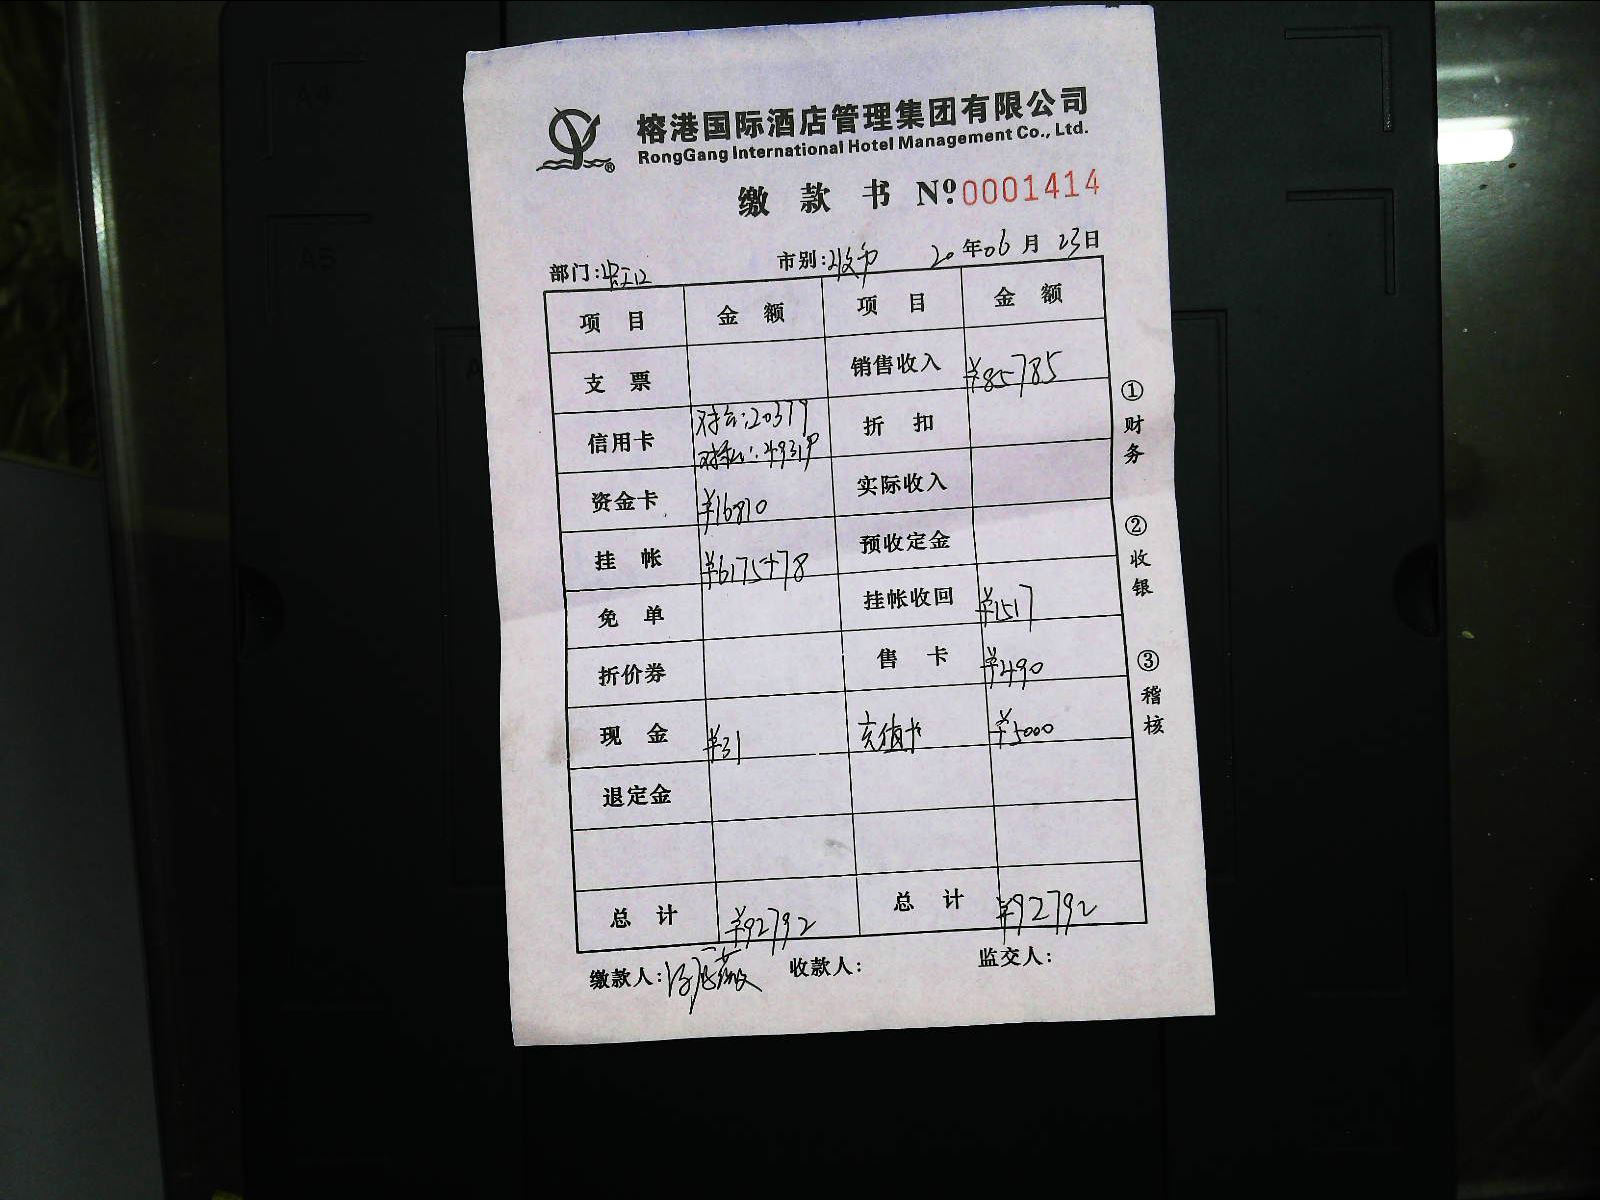 榕港国际酒店管理集团有限公司
RongGang International Hotel Management Co., Ltd.
缴款书 Nº:0001414
部门: 市别: 20年06月23日
项目 金额 项目 金额
支票 销售收入 ¥85785
信用卡 :20379 :49319 折扣
资金卡 ¥16810 实际收入
挂帐 ¥6175+78 预收定金
免单 挂帐收回 ¥1517
折价券 售卡 ¥490
现金 ¥31 充值卡 ¥5000
退定金
总计 ¥92792 总计 ¥92792
缴款人: 收款人: 监交人:
①财务
②收银
③稽核
A4
A5